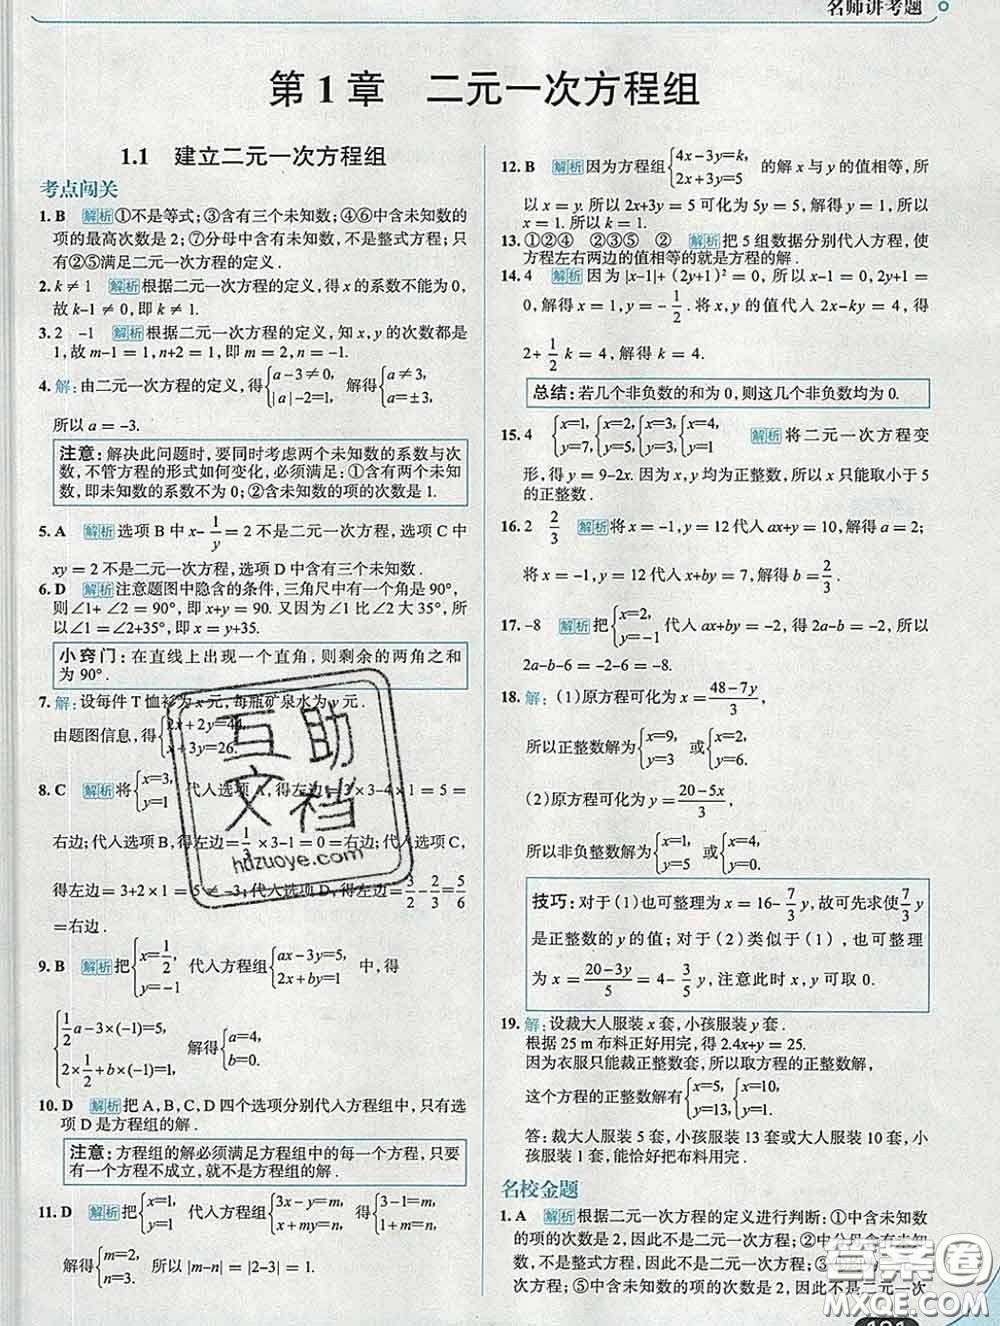 名师讲考题
第1章 二元一次方程组
1.1 建立二元一次方程组
考点闯关
1. B 解析 ①不是等式;③含有三个未知数;④⑥中含未知数的
项的最高次数是2;⑦分母中含有未知数,不是整式方程;只
有②⑤满足二元一次方程的定义.
2. k≠1 解析 根据二元一次方程的定义,得x的系数不能为0,
故k-1≠0,即k≠1.
3. 2 -1 解析 根据二元一次方程的定义,知x,y的次数都是
1,故m-1=1,n+2=1,即m=2,n=-1.
4. 解:由二元一次方程的定义,得{a-3≠0, |a|-2=1, 解得{a≠3, a=±3,
所以a=-3.
注意:解决此问题时,要同时考虑两个未知数的系数与次
数,不管方程的形式如何变化,必须满足:①含有两个未知
数,即未知数的系数不为0;②含未知数的项的次数是1.
5. A 解析 选项B中x-1/y=2不是二元一次方程,选项C中
xy=2不是二元一次方程,选项D中含有三个未知数.
6. D 解析 注意题图中隐含的条件,三角尺中有一个角是90°,
则∠1+∠2=90°,即x+y=90.又因为∠1比∠2大35°,所
以∠1=∠2+35°,即x=y+35.
小窍门:在直线上出现一个直角,则剩余的两角之和
为90°.
7. 解:设每件T恤衫为x元,每瓶矿泉水为y元.
由题图信息,得{2x+2y=44, x+3y=26.
8. C 解析 将{x=3, y=1 代入选项A,得左边=3×3-4×1=5=
右边;代入选项B,得左边=1/3×3-1=0=右边;代入选项C,
得左边=3+2×1=5≠-3;代入选项D,得左边=3/2-2/3=5/6
=右边.
9. B 解析 把{x=1/2, y=-1 代入方程组{ax-3y=5, 2x+by=1 中,得
{1/2a-3×(-1)=5, 2×1/2+b×(-1)=1, 解得{a=4, b=0.
10. D 解析 把A,B,C,D四个选项分别代入方程组中,只有选
项D是方程组的解.
注意:方程组的解必须满足方程组中的每一个方程,只要
有一个方程不成立,就不是方程组的解.
11. D 解析 把{x=1, y=1 代入方程组{3x-y=m, x+my=n, 得{3-1=m, 1+m=n,
解得{m=2, n=3. 所以|m-n|=|2-3|=1.
12. B 解析 因为方程组{4x-3y=k, 2x+3y=5 的解x与y的值相等,所
以x=y.所以2x+3y=5可化为5y=5,解得y=1.所以
x=1.所以k=1.
13. ①②④ ②③⑤ ② 解析 把5组数据分别代入方程,使
方程左右两边的值相等的就是方程的解.
14. 4 解析 因为|x-1|+(2y+1)²=0,所以x-1=0,2y+1=
0,解得x=1,y=-1/2.将x,y的值代入2x-ky=4,得
2+1/2k=4,解得k=4.
总结:若几个非负数的和为0,则这几个非负数均为0.
15. 4 {x=1, y=7, {x=2, y=5, {x=3, y=3, {x=4, y=1 解析 将二元一次方程变
形,得y=9-2x.因为x,y均为正整数,所以x只能取小于5
的正整数.
16. 2 2/3 解析 将x=-1,y=12代入ax+y=10,解得a=2;
将x=-1,y=12代入x+by=7,解得b=2/3.
17. -8 解析 把{x=2, y=-1 代入ax+by=-2,得2a-b=-2,所以
2a-b-6=-2-6=-8.
18. 解:(1)原方程可化为x=48-7y/3,
所以正整数解为{x=9, y=3 或{x=2, y=6.
(2)原方程可化为y=20-5x/3,
所以非负整数解为{x=1, y=5 或{x=4, y=0.
技巧:对于(1)也可整理为x=16-7/3y,故可先求使7/3y
是正整数的y的值;对于(2)类似于(1),也可整理
为x=20-3y/5=4-3/5y,注意此时x,y可取0.
19. 解:设裁大人服装x套,小孩服装y套.
根据25 m布料正好用完,得2.4x+y=25.
因为衣服只能裁正整数套,所以取方程的正整数解,
这个方程的解有{x=5, y=13, {x=10, y=1.
答:裁大人服装5套,小孩服装13套或大人服装10套,小孩
服装1套,能恰好把布料用完.
名校金题
1. A 解析 根据二元一次方程的定义进行判断:①中含未知数
的项的次数是2,因此不是二元一次方程;②中分母含有未知
数,不是整式方程,因此不是二元一次方程;③④是二元一
次方程;⑤中含未知数的项的次数是2,因此不是二元一次
互助
文档
hdzuoye.com
答案圈
MXQE.COM